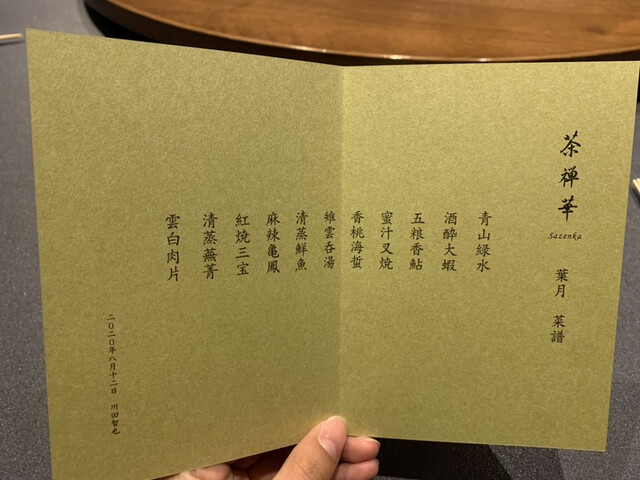 茶禅華
Sazenka
葉月 菜譜
青山緑水
酒酔大蝦
五粮香鮎
蜜汁叉焼
香桃海蜇
雉雲呑湯
清蒸鮮魚
麻辣亀鳳
紅焼三宝
清蒸蕪菁
雲白肉片
二〇二〇年八月十二日 川田智也